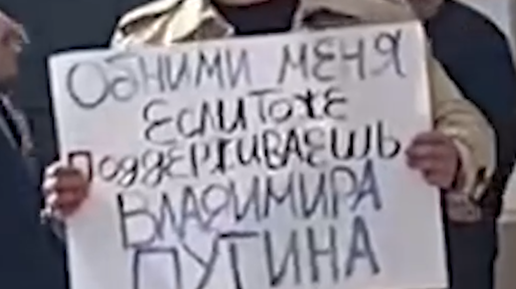 ОБНИМИ МЕНЯ
ЕСЛИ ТОЖЕ
ПОДДЕРЖИВАЕШЬ
ВЛАДИМИРА
ПУТИНА